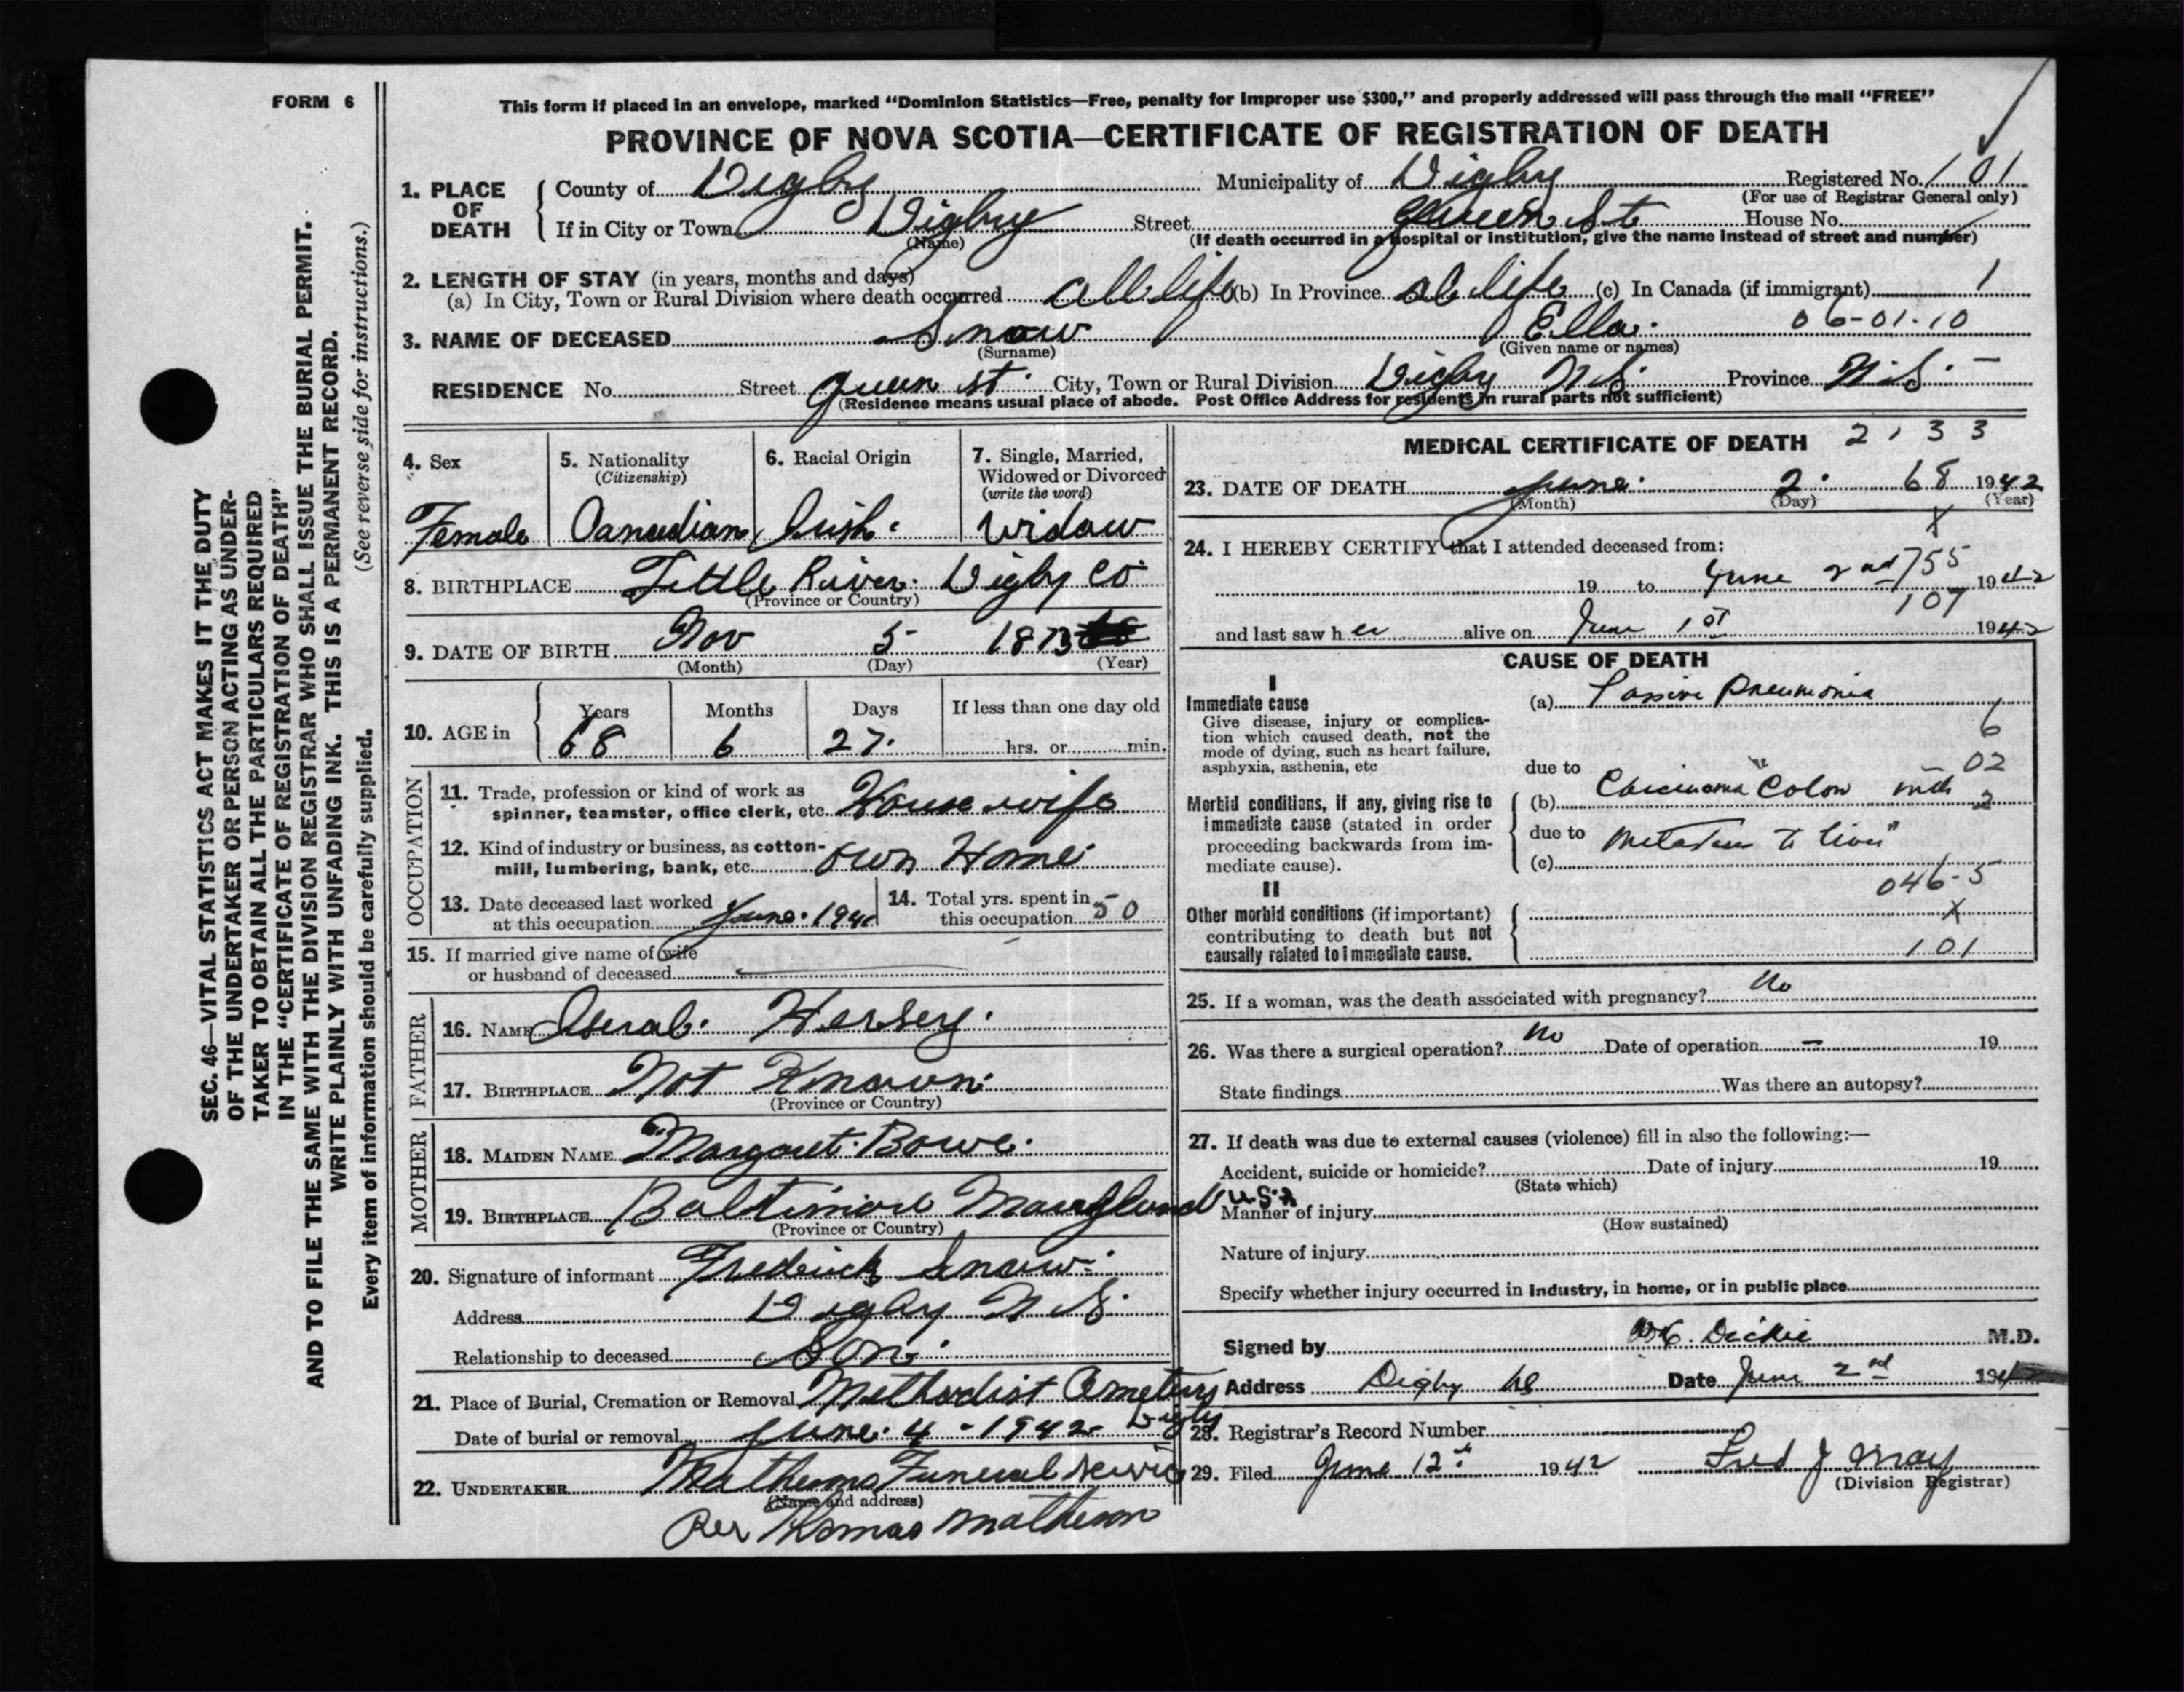 FORM 6
This form if placed in an envelope, marked "Dominion Statistics—Free, penalty for improper use $300," and properly addressed will pass through the mail "FREE"
PROVINCE OF NOVA SCOTIA—CERTIFICATE OF REGISTRATION OF DEATH
SEC. 46—VITAL STATISTICS ACT MAKES IT THE DUTY
OF THE UNDERTAKER OR PERSON ACTING AS UNDER-
TAKER TO OBTAIN ALL THE PARTICULARS REQUIRED
IN THE "CERTIFICATE OF REGISTRATION OF DEATH"
AND TO FILE THE SAME WITH THE DIVISION REGISTRAR WHO SHALL ISSUE THE BURIAL PERMIT.
WRITE PLAINLY WITH UNFADING INK. THIS IS A PERMANENT RECORD.
Every item of information should be carefully supplied. (See reverse side for instructions.)
1. PLACE OF DEATH
County of Digby Municipality of Digby Registered No. 101
(For use of Registrar General only)
If in City or Town Digby Street Queen St House No.
(Name) (If death occurred in a hospital or institution, give the name instead of street and number)
2. LENGTH OF STAY (in years, months and days)
(a) In City, Town or Rural Division where death occurred all life (b) In Province al life (c) In Canada (if immigrant) 1
3. NAME OF DECEASED Snow Ella. 06-01-10
(Surname) (Given name or names)
RESIDENCE No. Street Queen St. City, Town or Rural Division Digby N S. Province N.S. —
(Residence means usual place of abode. Post Office Address for residents in rural parts not sufficient)
4. Sex
Female
5. Nationality
(Citizenship)
Canadian
6. Racial Origin
Irish.
7. Single, Married,
Widowed or Divorced
(write the word)
Widow
8. BIRTHPLACE Little River. Digby Co
(Province or Country)
9. DATE OF BIRTH Nov 5 1873
(Month) (Day) (Year)
10. AGE in
Years Months Days If less than one day old
68 6 27. hrs. or min.
OCCUPATION
11. Trade, profession or kind of work as
spinner, teamster, office clerk, etc. House wife
12. Kind of industry or business, as cotton-
mill, lumbering, bank, etc. Own Home
13. Date deceased last worked
at this occupation June. 194
14. Total yrs. spent in
this occupation 50
15. If married give name of wife
or husband of deceased
FATHER
16. NAME Hersey.
17. BIRTHPLACE Not Known.
(Province or Country)
MOTHER
18. MAIDEN NAME Margaret. Bowe.
19. BIRTHPLACE Baltimore Maryland U.S.A
(Province or Country)
20. Signature of informant Frederick Snow.
Address Digby N S.
Relationship to deceased Son.
21. Place of Burial, Cremation or Removal Methodist Cemetery Digby
Date of burial or removal June. 4 - 1942
22. UNDERTAKER Matheson Funeral Service
(Name and address)
Per Thomas Matheson
MEDICAL CERTIFICATE OF DEATH 2133
23. DATE OF DEATH June. 2. 68 1942
(Month) (Day) (Year)
X
24. I HEREBY CERTIFY that I attended deceased from:
755
19 to June 2nd 1942
107
and last saw her alive on June 1st 1942
CAUSE OF DEATH
I
Immediate cause
Give disease, injury or complica-
tion which caused death, not the
mode of dying, such as heart failure,
asphyxia, asthenia, etc
(a) Passive Pneumonia
6
due to 02
Morbid conditions, if any, giving rise to
immediate cause (stated in order
proceeding backwards from im-
mediate cause).
(b) Carcinoma Colon with 2
due to
(c) Metastases to liver
046-5
II
Other morbid conditions (if important)
contributing to death but not
causally related to immediate cause.
X
101
25. If a woman, was the death associated with pregnancy? No
26. Was there a surgical operation? No Date of operation — 19
State findings Was there an autopsy?
27. If death was due to external causes (violence) fill in also the following:—
Accident, suicide or homicide? Date of injury 19
(State which)
Manner of injury
(How sustained)
Nature of injury
Specify whether injury occurred in industry, in home, or in public place
Signed by Dickie M.D.
Address Digby NS Date June 2nd 194
28. Registrar's Record Number
29. Filed June 12th 1942 Fred J May
(Division Registrar)